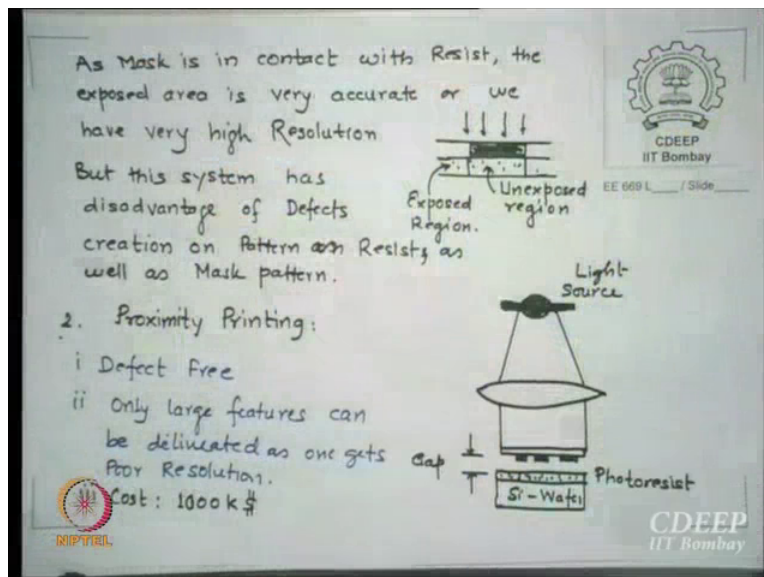 As Mask is in contact with Resist, the
exposed area is very accurate or we
have very high Resolution
But this system has
disadvantage of Defects
creation on Pattern on Resists, as
well as Mask pattern.
Exposed
Region.
Unexposed
region
CDEEP
IIT Bombay
EE 669 L___ / Slide___
2. Proximity Printing:
i Defect Free
ii Only large features can
be delineated as one gets
Poor Resolution.
Cost: 1000 k $
Light
Source
Gap
Photoresist
Si-Wafer
NPTEL
CDEEP
IIT Bombay